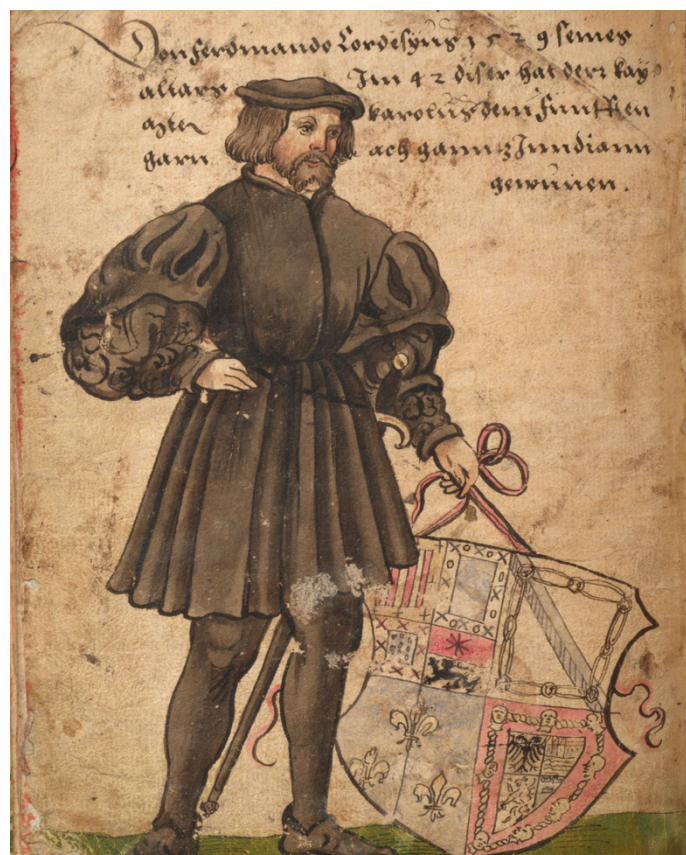 Don Ferdinando Cordesyus 1529 seines
altars Im 42 diser hat derr kay
karolus dem funfften
garn ach ganntz Inndiann
gewunen.